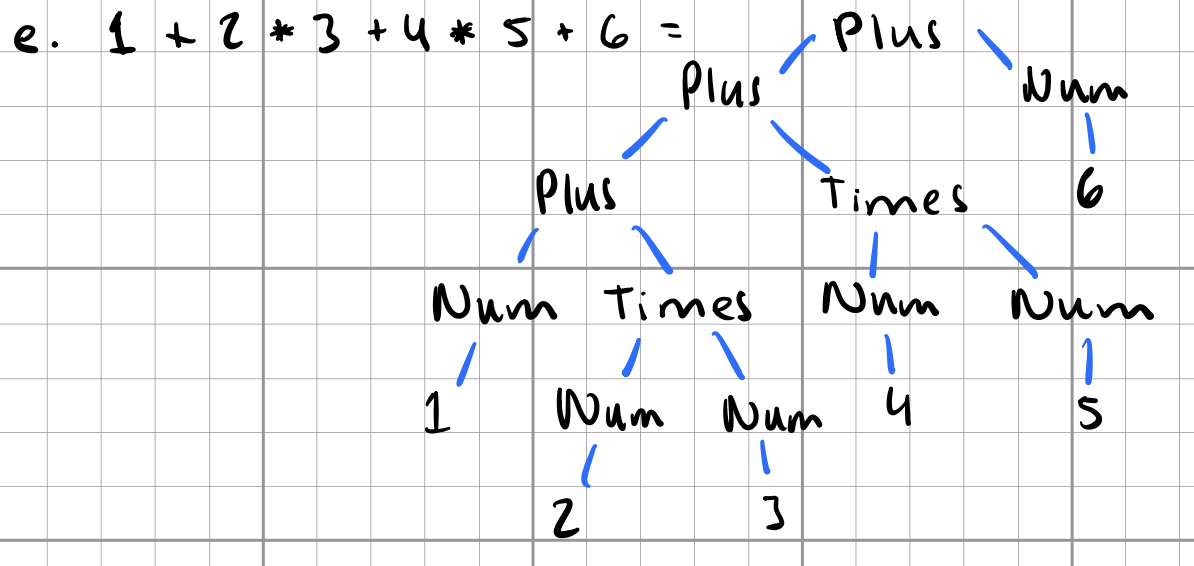 e. 1 + 2 * 3 + 4 * 5 + 6 = Plus
Plus Num
Plus Times 6
Num Times Num Num
1 Num Num 4 5
2 3